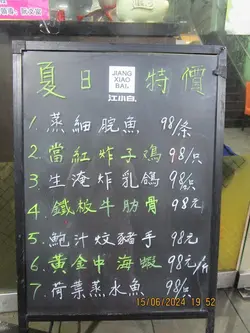 夏日
JIANG
XIAO
BAI
江小白
特價
1. 蒸細脘魚 98/条
2. 當紅炸子鴿 98/只
3. 生淹炸乳鴿 98/只
4. 鐵板牛肋骨 98元
5. 鮑汁炆豬手 98元
6. 黃金中海蝦 98元/斤
7. 荷葉蒸水魚 98/只
15/06/2024 19:52